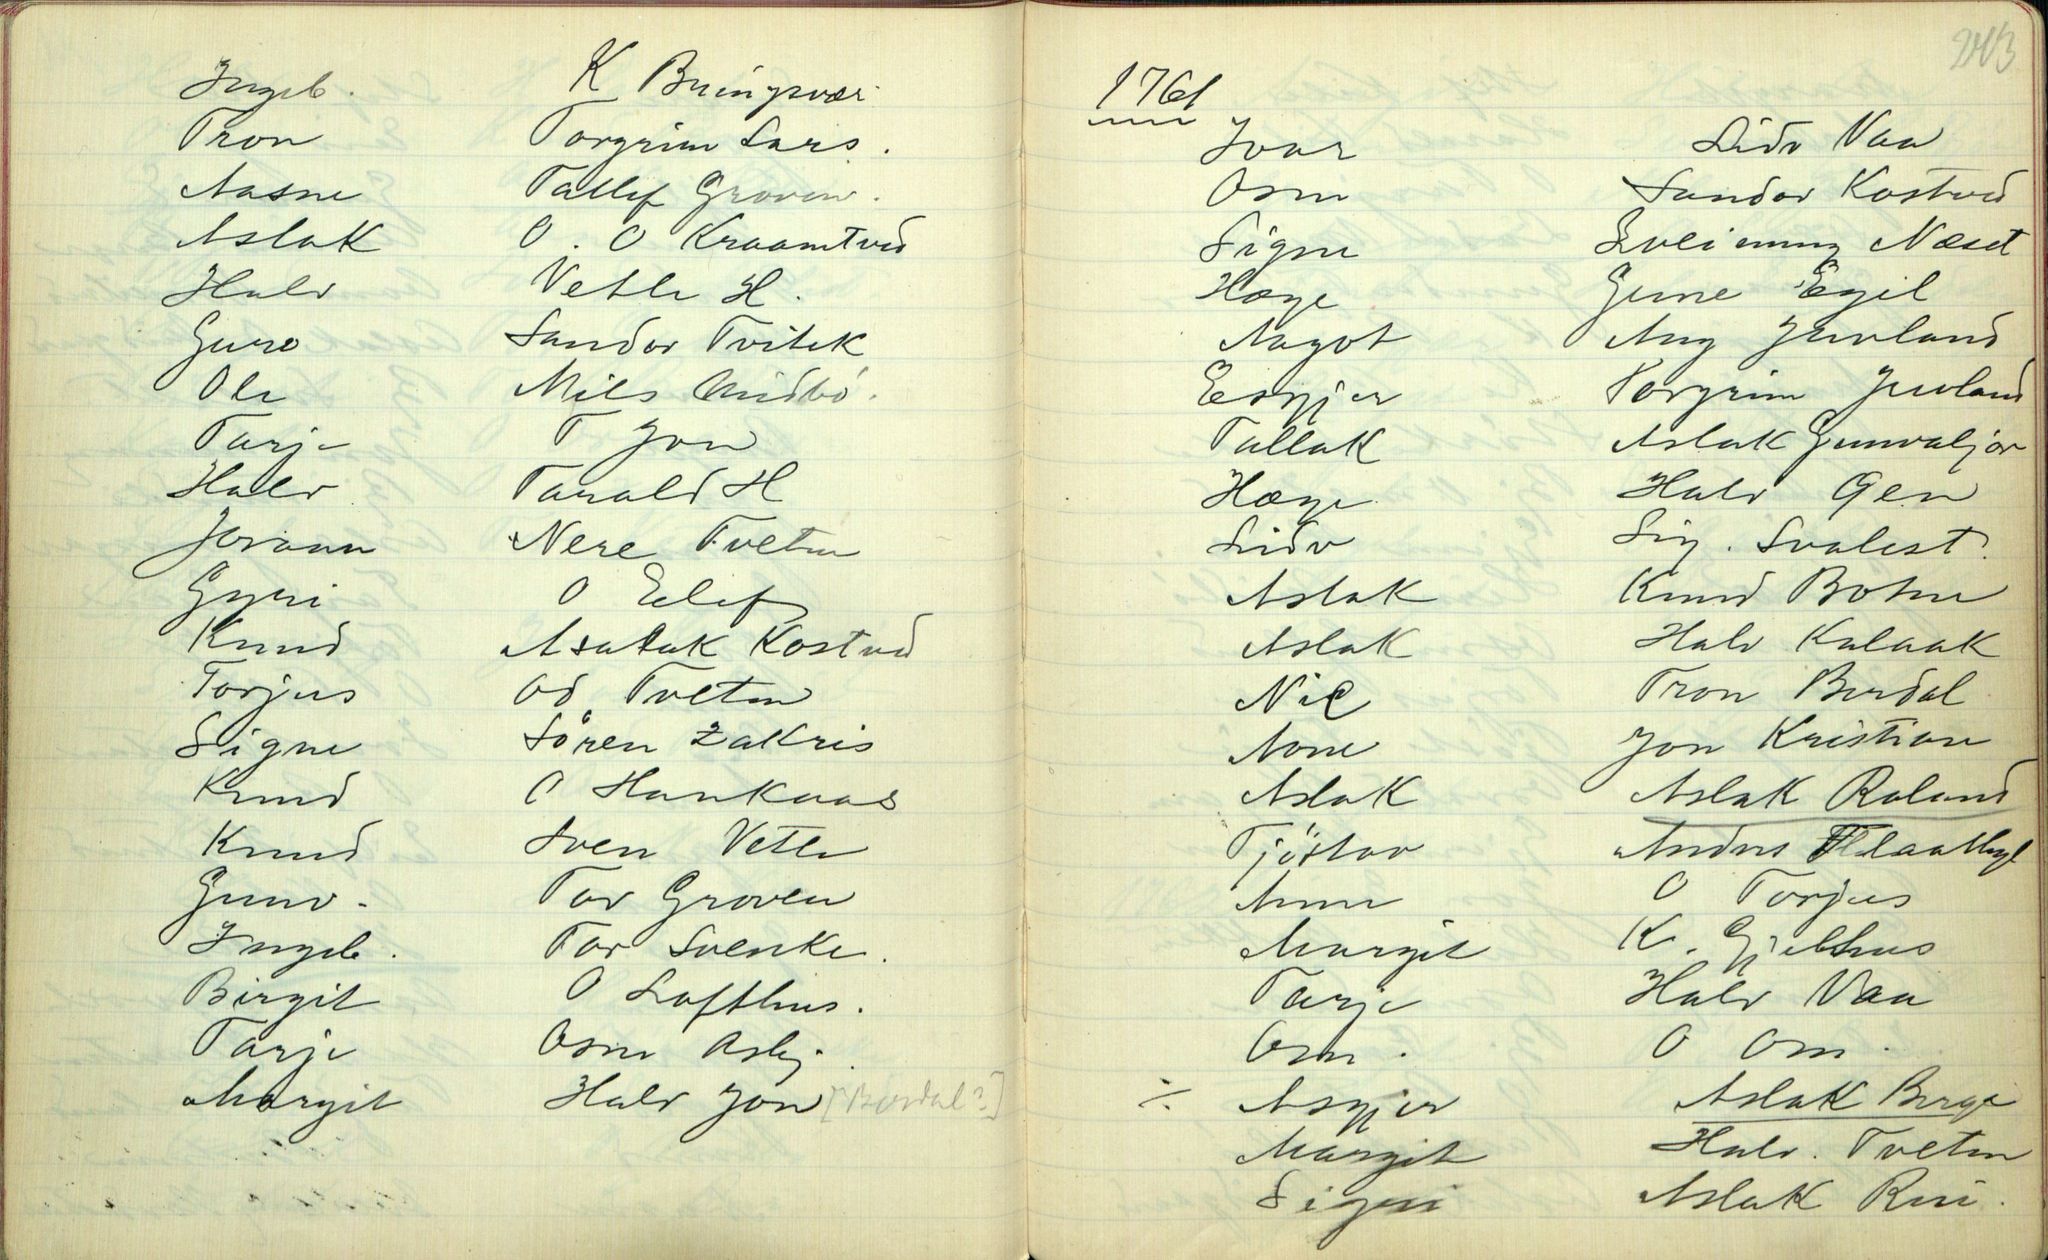 Ingeb. K Bringsvær
Tron Torgrim Lars.
Aasne Tallef Groven.
Aslak O. O Kraamtved
Halv Vetle H.
Guro Sandor Tvitek
Ole Nils Midbö.
Tarje T Jon
Halv Tarald H
Joraan Nere Tveten
Gyri O Eelef
Knud Asalak Kostved
Torjus Od Tveten
Signe Sören Zakris
Knud O Haukaas
Knud Sven Vetle
Gunv. Tov Groven
Ingeb. Tor Svenke.
Birgit O Lofthus.
Tarje Osm Asbj.
Margit Halv Jon [Berdal?]
203
1761
Ivar Lidv Vaa
Osm Sandor Kostved
Signe Sveinung Næset
Hæge Gune Egil
Aagot Aug Juvland
Esgjer Torgrim Juvland
Tallak Aslak Gunvaljor
Hæge Halv Gen
Lidv Sig. Svalest.
Aslak Knud Boten
Aslak Halv Kalaak
Nil Tron Berdal
Aone Jon Kristian
Aslak Aslak Roland
Tjöstov Andres Flaathyl
Anne O Torjus
Margit K. Gjelhus
Tarje Halv Vaa
Osm. O Om.
÷ Asgjer Aslak Berge
Margit Halv. Tveten
Signi Aslak Rui.